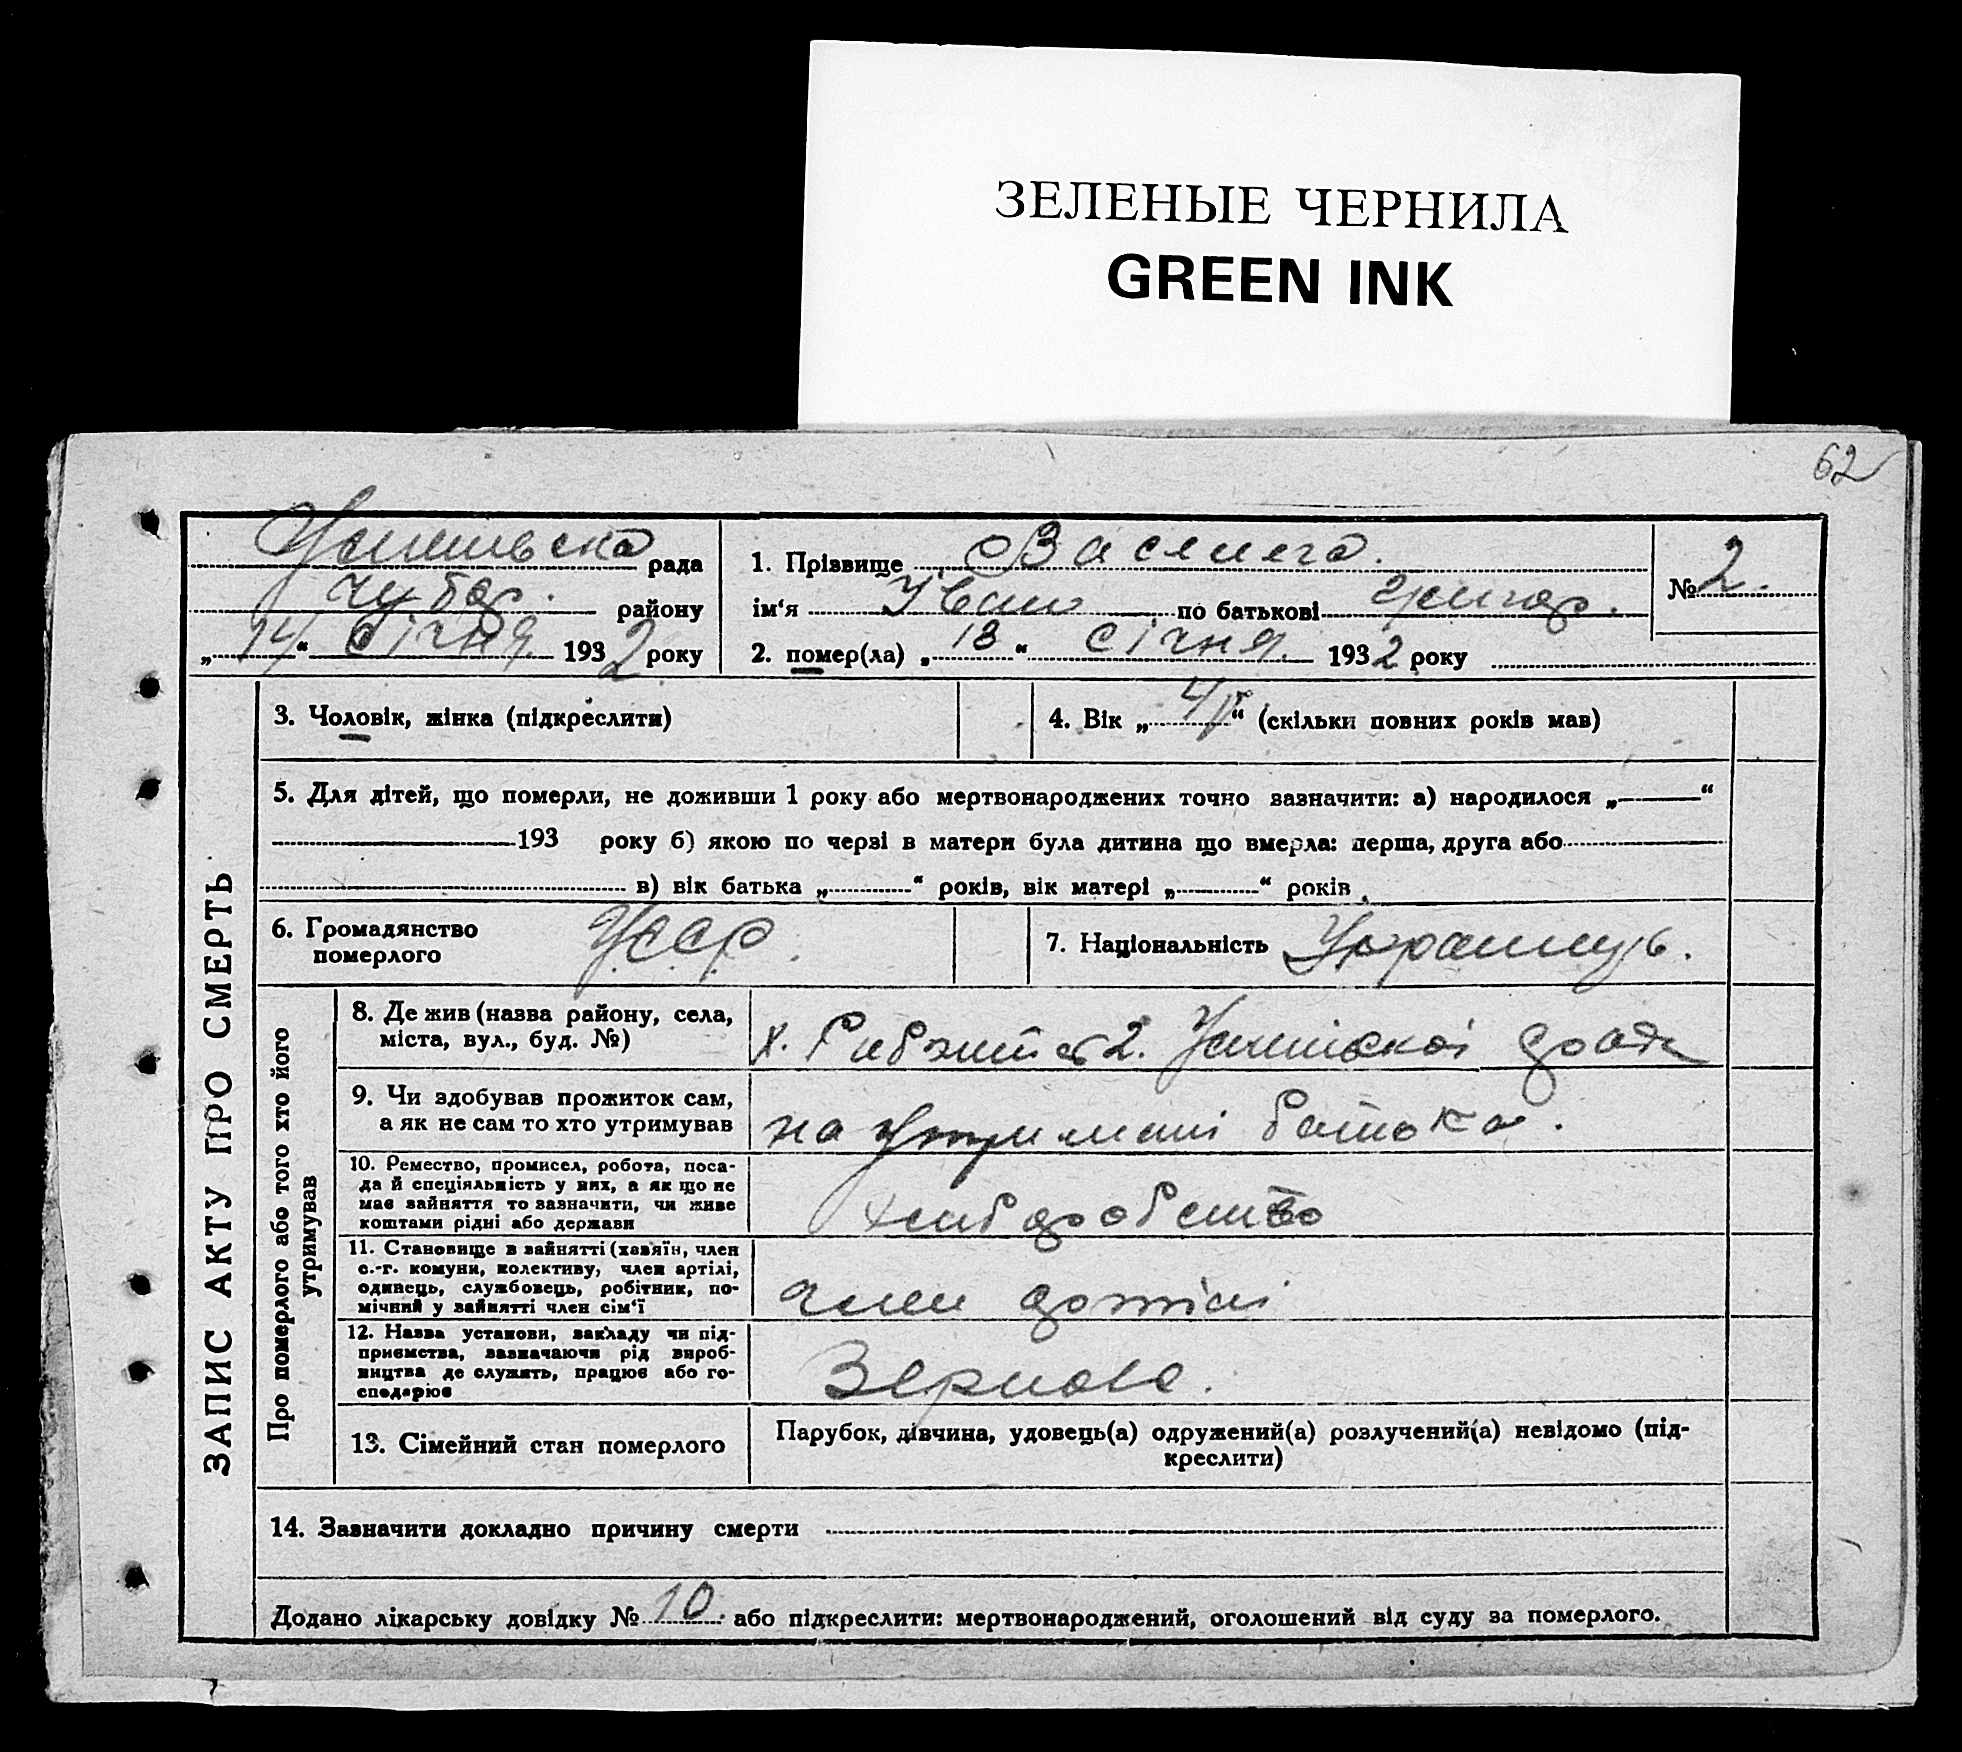 ЗЕЛЕНЫЕ ЧЕРНИЛА
GREEN INK
62
рада
Чубар. району
„14“ Січня 1932 року
1. Прізвище
ім‘я Іван по батькові Григор.
№ 2.
2. помер(ла) „13“ Січня. 1932 року
ЗАПИС АКТУ ПРО СМЕРТЬ
3. Чоловік, жінка (підкреслити)
4. Вік „4р“ (скільки повних років мав)
5. Для дітей, що померли, не доживши 1 року або мертвонароджених точно зазначити: а) народилося „ “
193 року б) якою по черзі в матери була дитина що вмерла: перша, друга або
в) вік батька „ “ років, вік матері „ “ років
6. Громадянство
померлого УССР.
7. Національність Українець.
Про померлого або того хто його
утримував
8. Де жив (назва району, села,
міста, вул., буд. №)
х. 2. ради
9. Чи здобував прожиток сам,
а як не сам то хто утримував
на утримані батька.
10. Ремество, промисел, робота, поса-
да й спеціяльність у них, а як що не
має зайняття то зазначити, чи живе
коштами рідні або держави
хліборобство
11. Становище в зайнятті (хазяїн, член
с.-г. комуни, колективу, член артілі,
одинець, службовець, робітник, по-
мічний у зайнятті член сім‘ї
член артілі
12. Назва установи, закладу чи під-
приємства, зазначаючи рід вироб-
ництва де служять, працює або го-
сподарює
Зернове.
13. Сімейний стан померлого
Парубок, дівчина, удовець(а) одружений(а) розлучений(а) невідомо (під-
креслити)
14. Зазначити докладно причину смерти
Додано лікарську довідку № 10. або підкреслити: мертвонароджений, оголошений від суду за померлого.